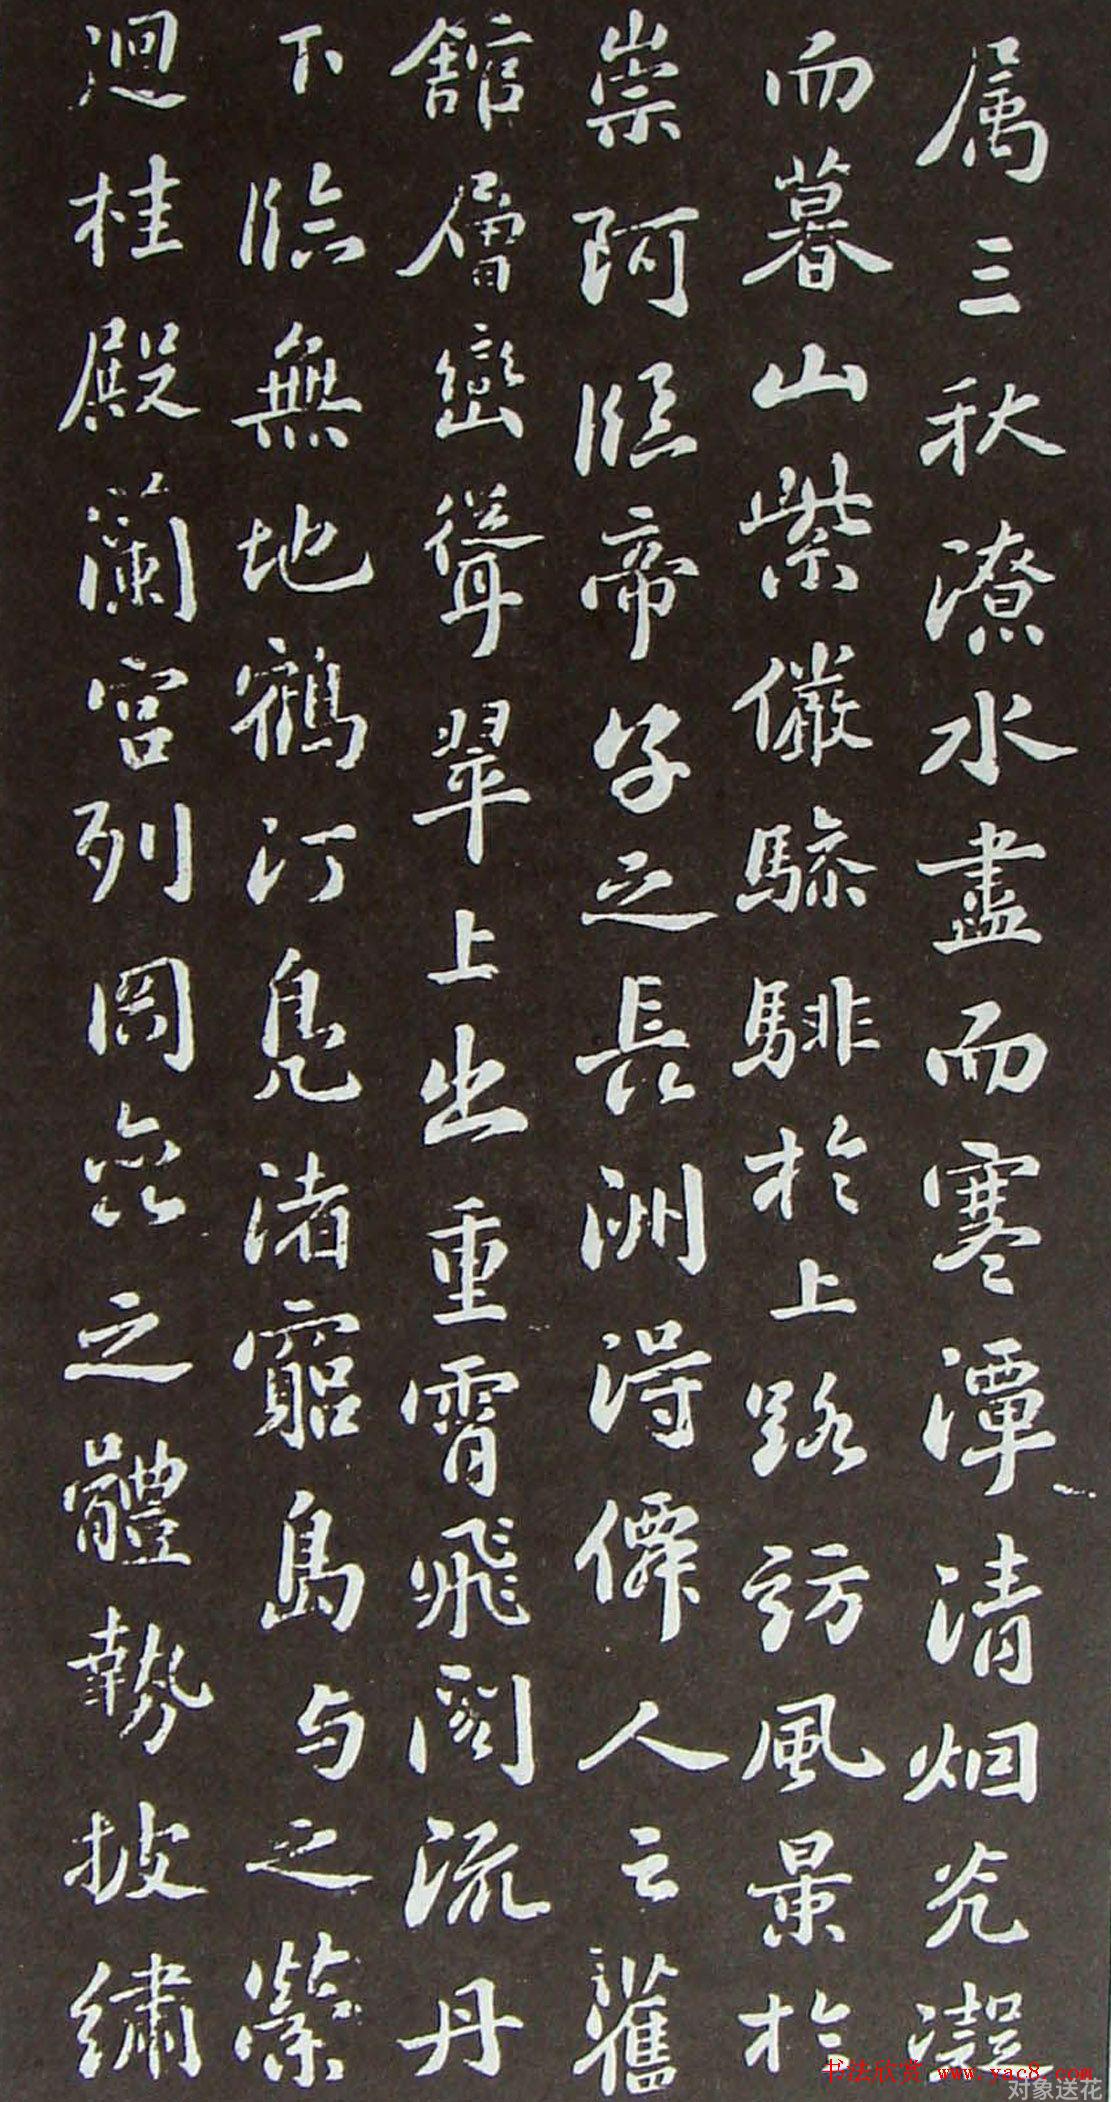 属三秋潦水盡而寒潭清烟光凝
而暮山紫儼驂騑於上路訪風景於
崇阿臨帝子之長洲得僊人之舊
舘層巒聳翠上出重霄飛閣流丹
下臨無地鶴汀鳧渚窮島與之縈
迴桂殿蘭宮列岡巒之體勢披繡
书法欣赏 www.yac8.com
对象送花